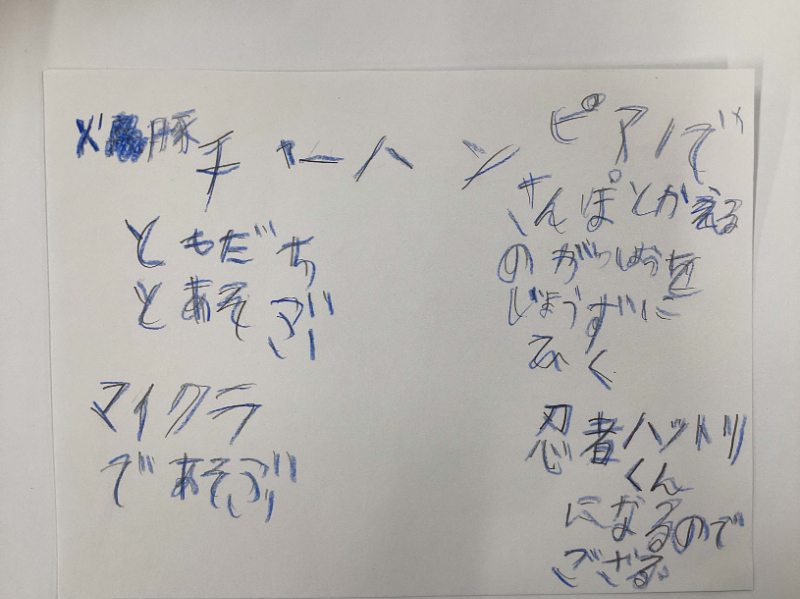 豚チャーハン
ともだち
とあそぶ
マイクラ
であそぶ
ピアノで
さんぽとかえる
のがっしょうを
じょうずに
ふく
忍者ハットリ
くん
になるので
ござる。